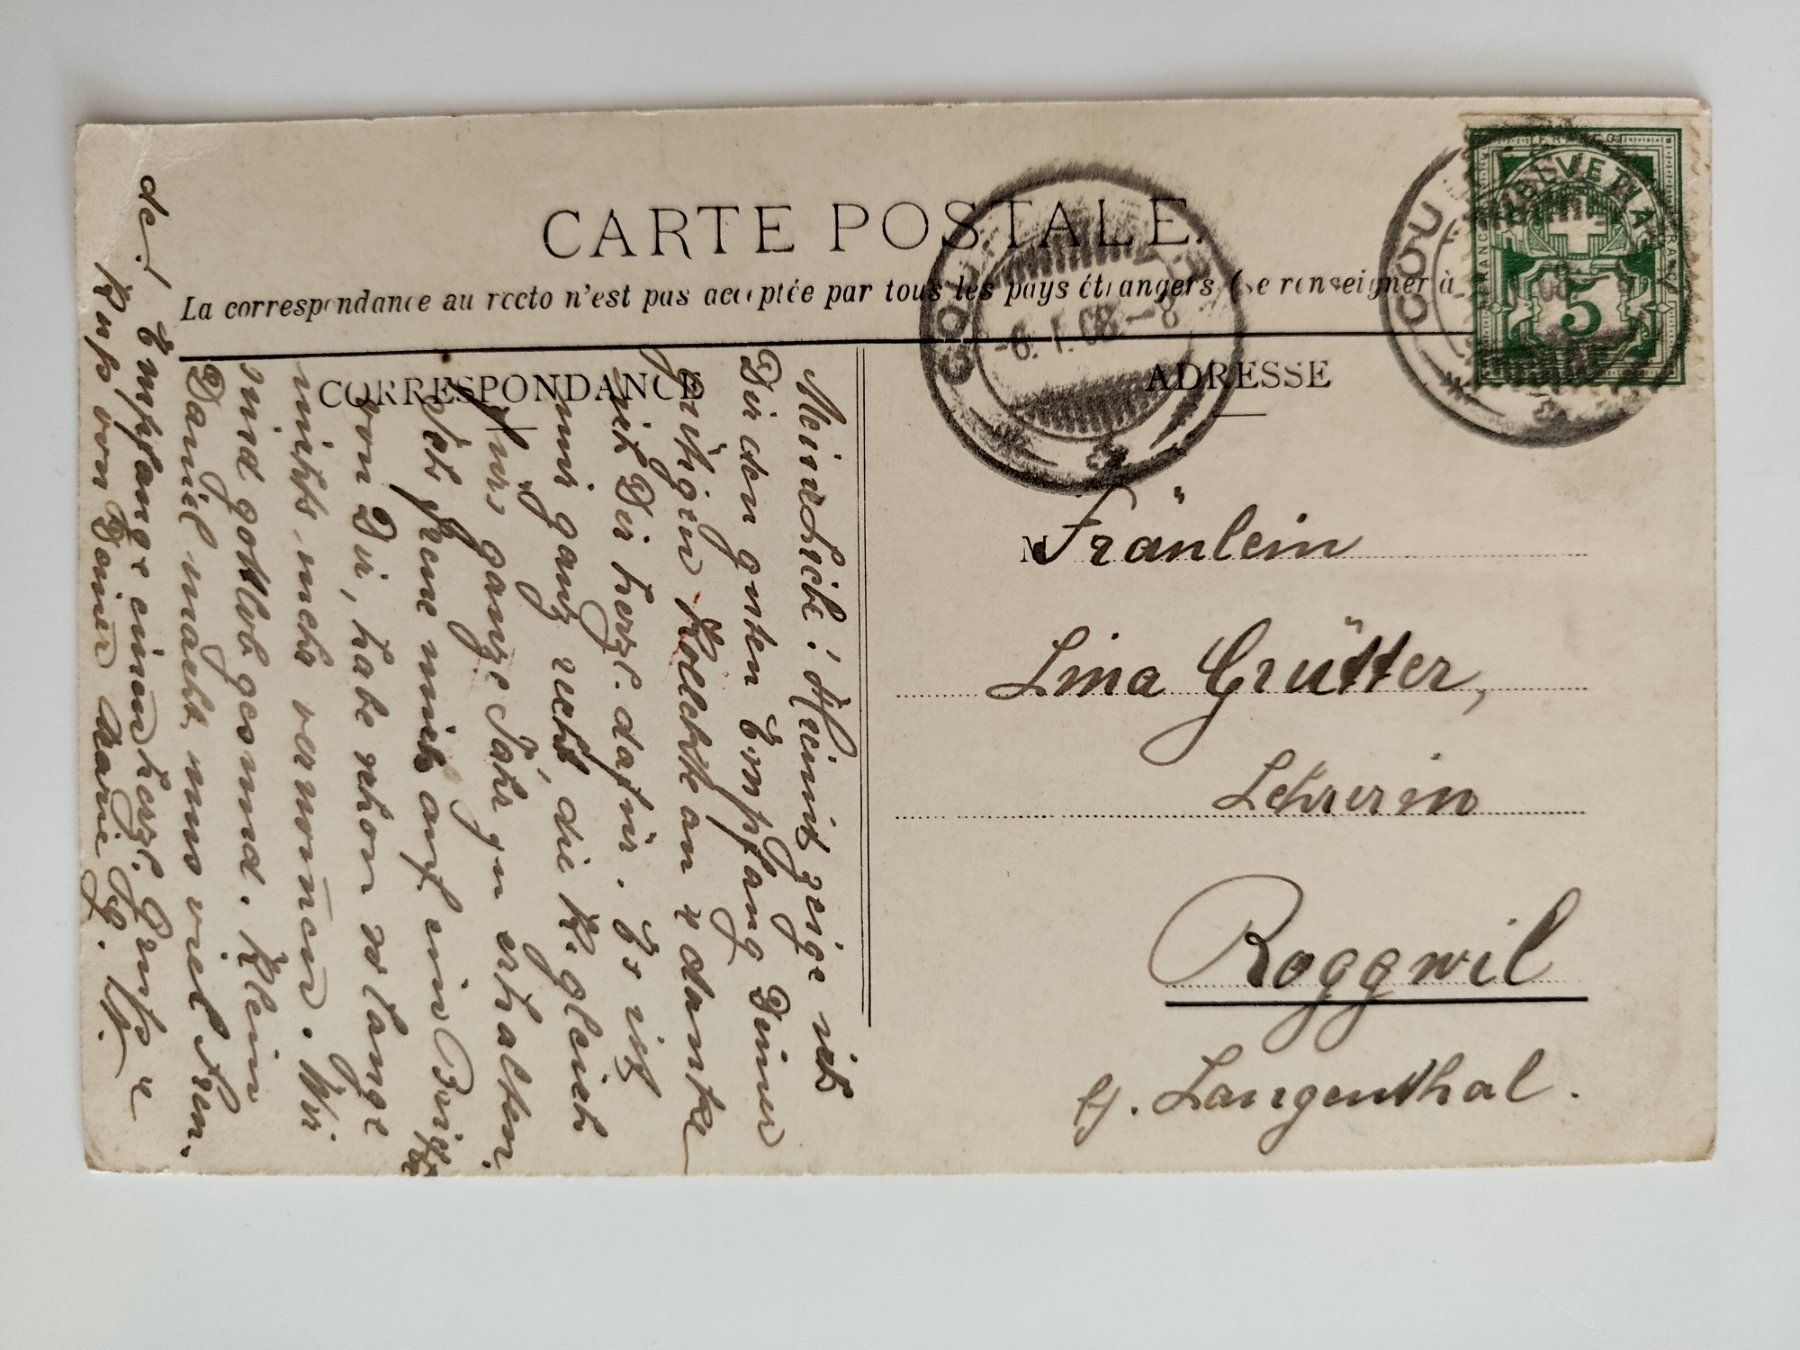 CARTE POSTALE.
La correspondance au recto n'est pas acceptée par tous les pays étrangers (Se renseigner à
CORRESPONDANCE
ADRESSE
HELVETIA
5
-6. I. 08.-8
M
Fräulein
Lina Grütter,
Lehrerin
Roggwil
b. Langenthal.
Meine Liebe! Hiemit zeige ich
Dir den guten Empfang Deiner
gütigen Kollekte an & danke
ich Dir herzl. dafür. Es ist
mir ganz recht, die K. gleich
fürs ganze Jahr zu erhalten.
Ich freue mich auf ein Brief
von Dir, habe schon so lange
nichts mehr vernom̄en. Wir
sind gottlob gesund. Klein
Daniel macht uns viel Freu-
de! Empfange einen herzl. Gruss &
Kuss von Deiner Marie